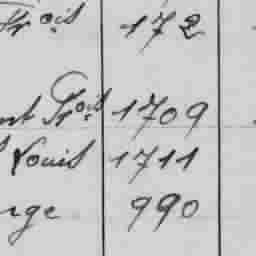 Frois 172
nt Frois 1709
s Louis 1711
rge 990